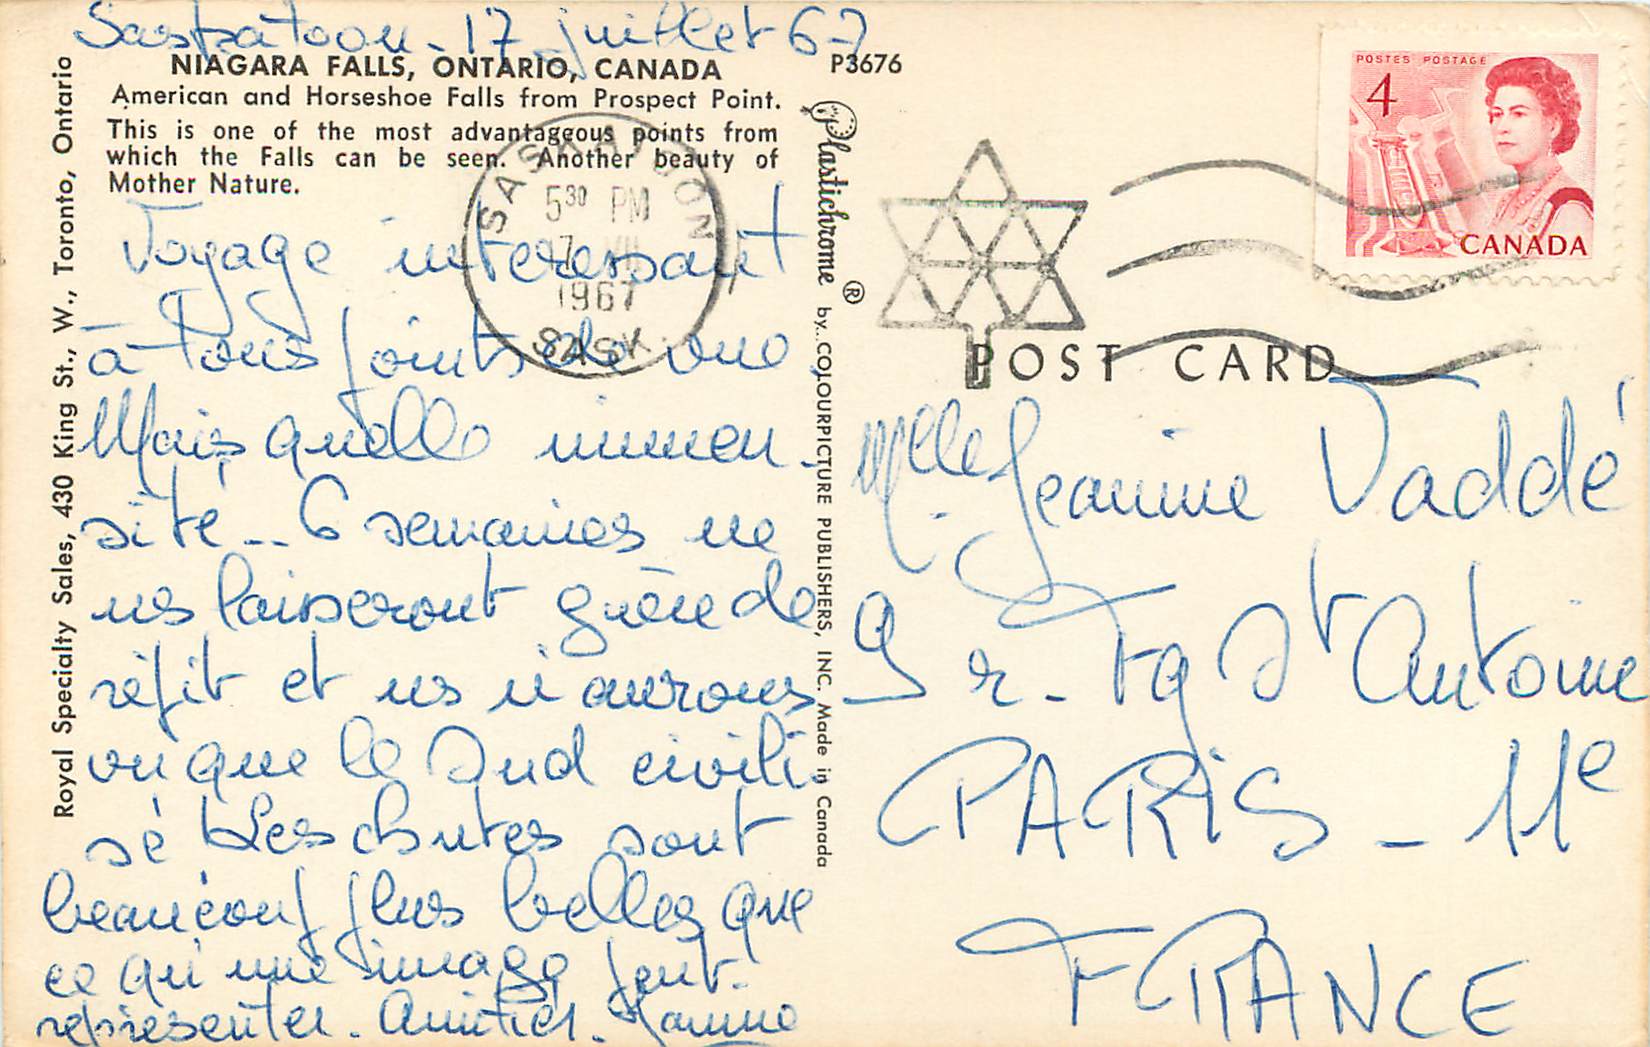 Saskatoon - 17 juillet 67
NIAGARA FALLS, ONTARIO, CANADA
American and Horseshoe Falls from Prospect Point.
This is one of the most advantageous points from
which the Falls can be seen. Another beauty of
Mother Nature.
P3676
Voyage interessant
à tous points de vue.
Mais quelle immen-
sité -- 6 semaines ne
ns laisseront guère de
répit et ns n'aurons
vu que le Sud civili-
sé Les chutes sont
beaucoup plus belles que
ce qu'une image peut
représenter. Amitiés.
Royal Specialty Sales, 430 King St., W., Toronto, Ontario
SASKATOON
5 30 PM
17 VII
1967
SASK.
Plastichrome ® by COLOURPICTURE PUBLISHERS, INC. Made in Canada
POSTES POSTAGE
4
CANADA
POST CARD
Mlle Jeanine Vaddé
9 r. Fg St Antoine
PARIS - 11e
FRANCE